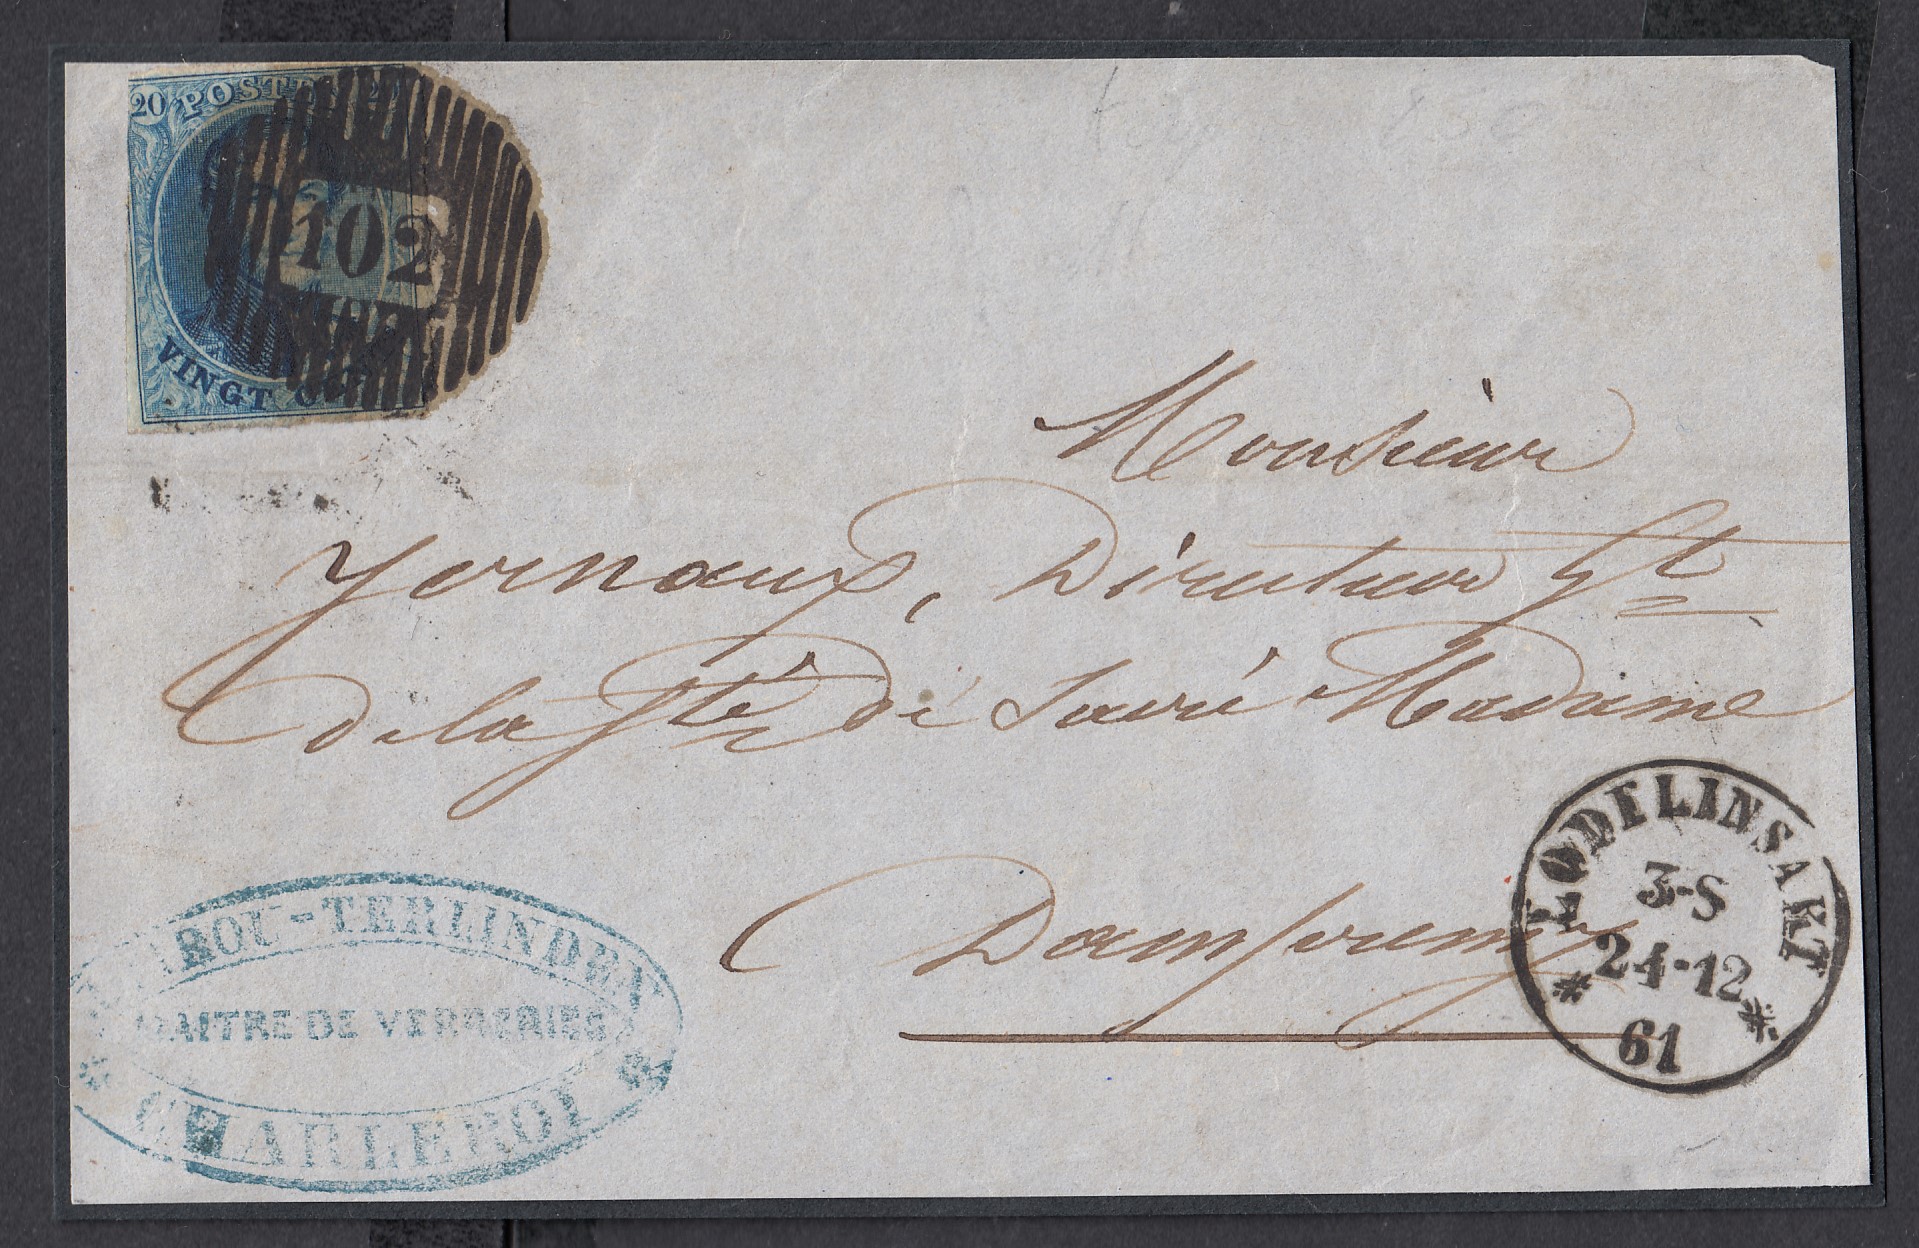 20 POSTES 20
102
VINGT
Monsieur
Yernaux, Directeur Gt
De la Sté de Sacré Madame
Dampremy
LODELINSART
3-S
24-12
61
ROU-TERLINDEN
MAITRE DE VERRERIES
CHARLEROI